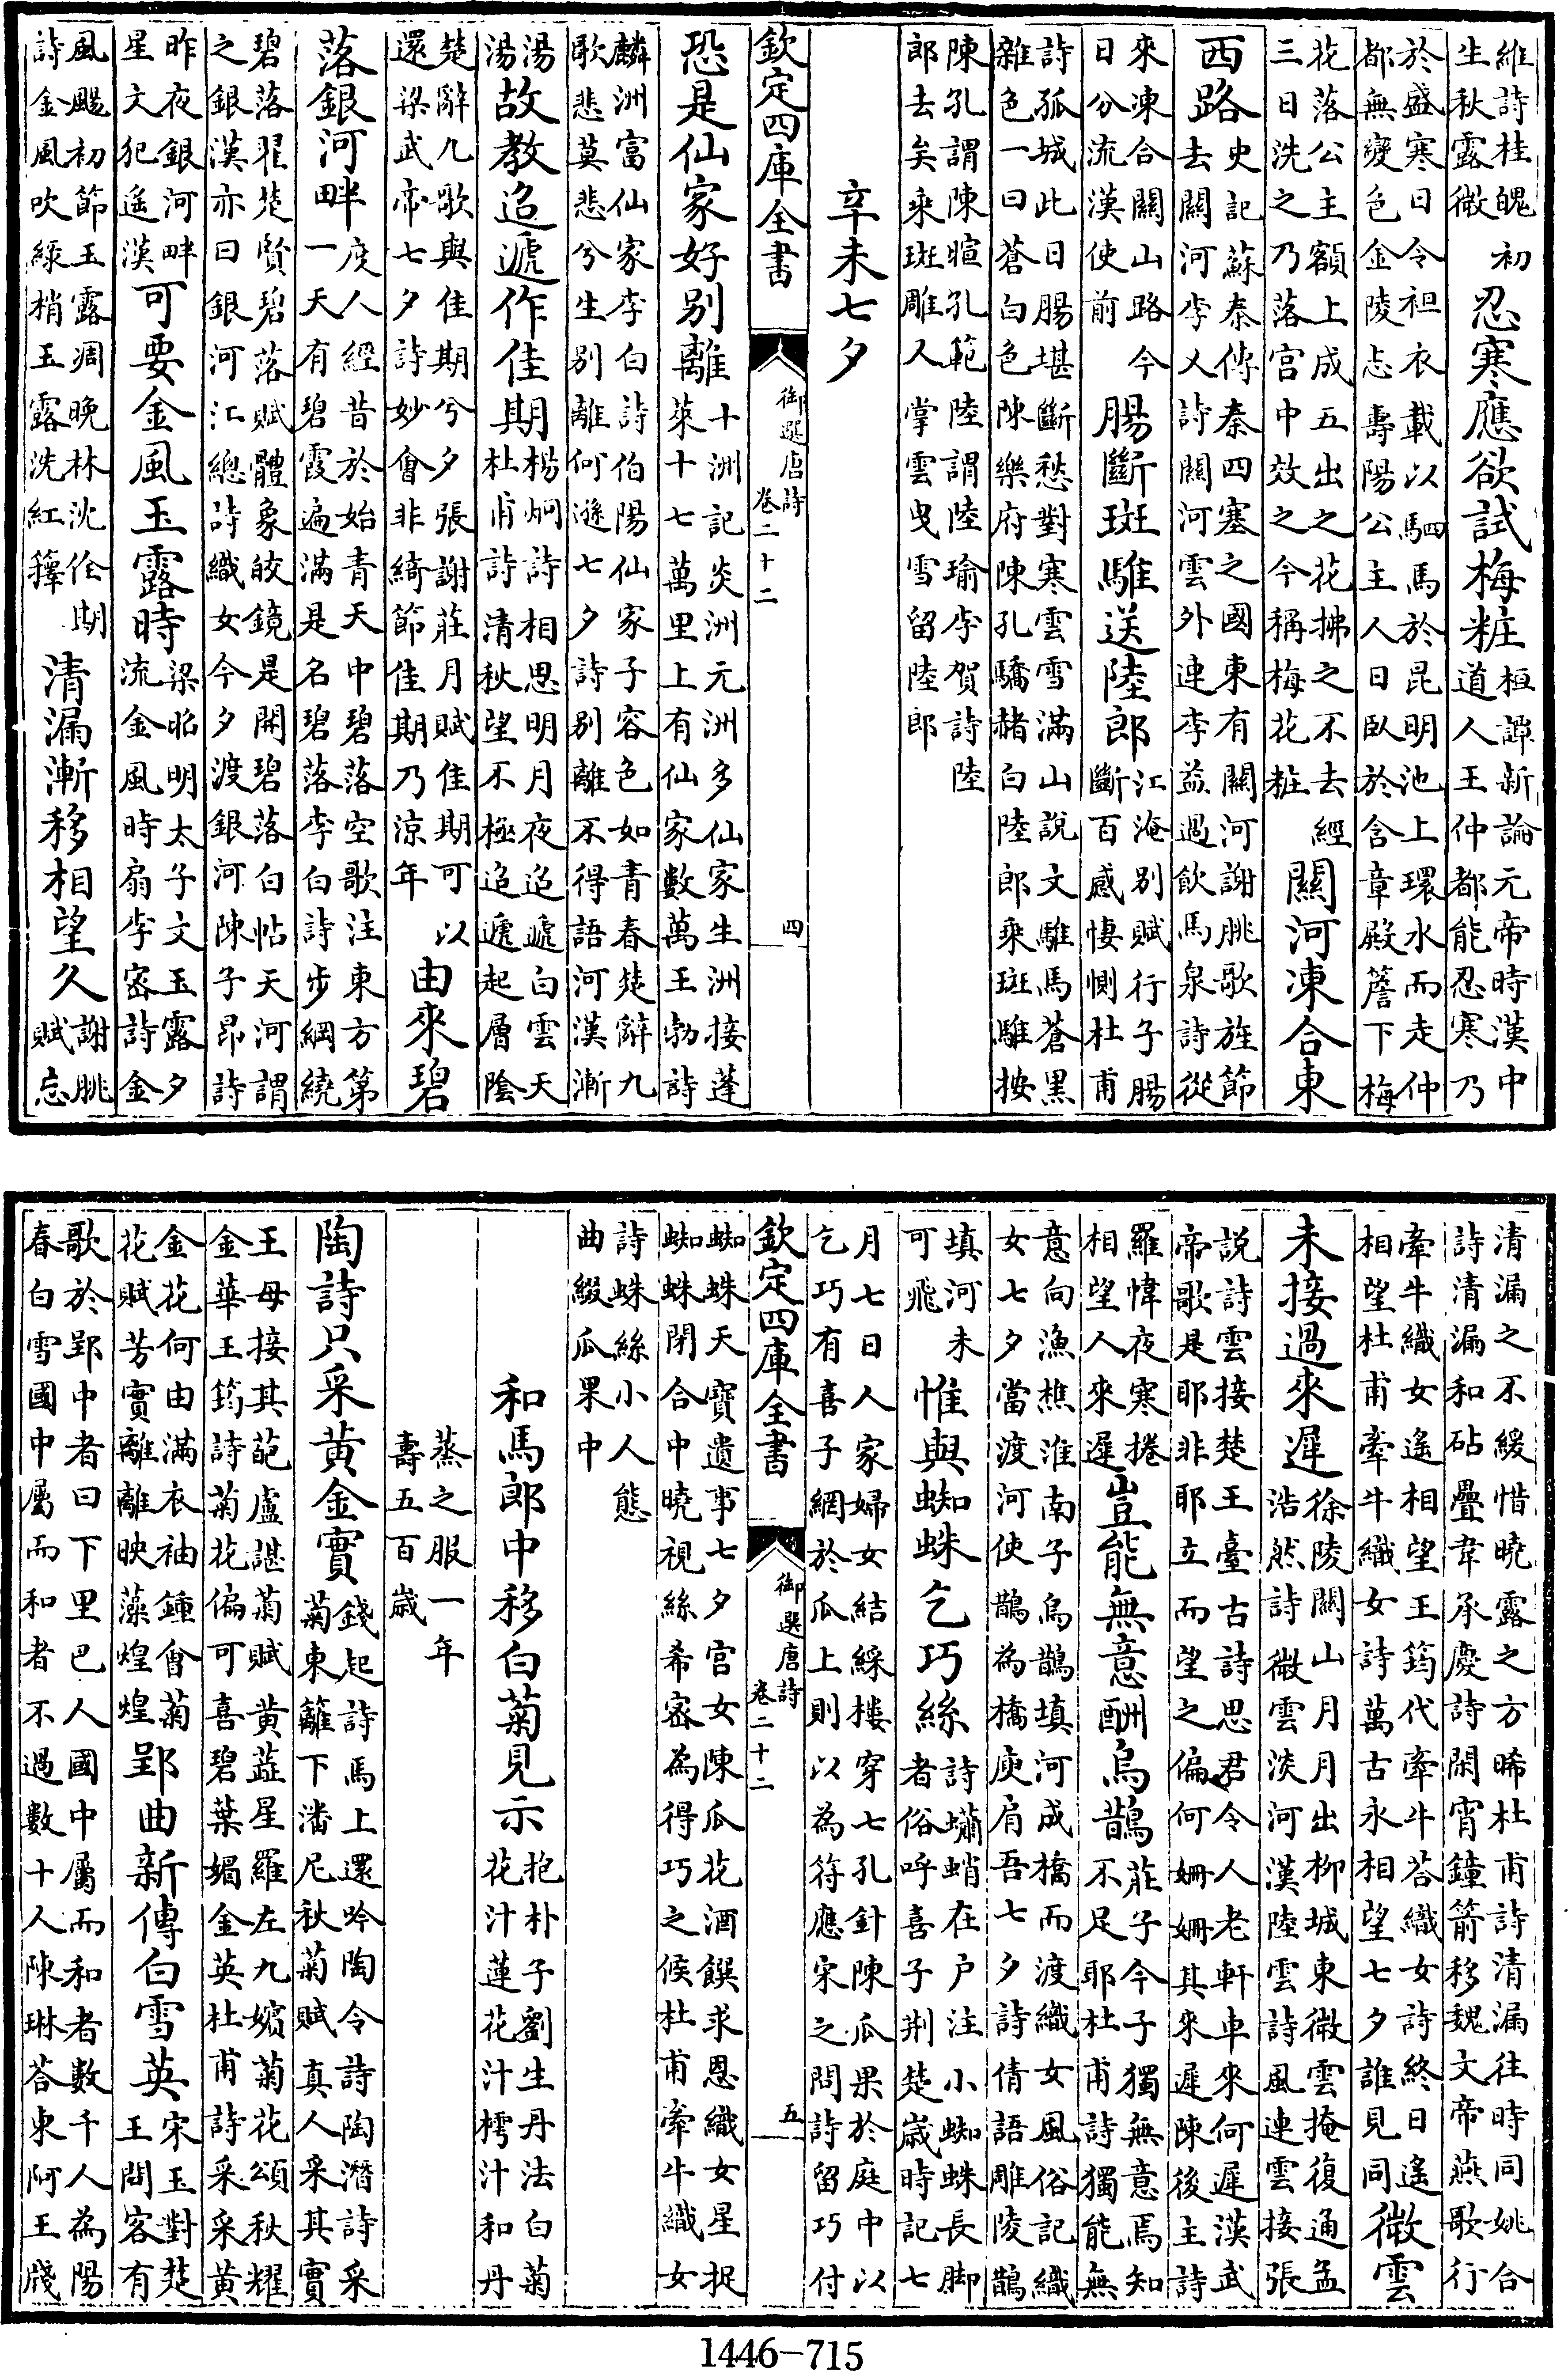 維詩桂魄初生秋露微忍寒應欲試梅粧桓譚新論元帝時漢中道人王仲都能忍寒乃
於盛寒日令袒衣載以駟馬於昆明池上環水而走仲都無變色金陵志壽陽公主人日臥於含章殿簷下梅
花落公主額上成五出之花拂之不去經三日洗之乃落宮中效之今稱梅花粧關河凍合東
西路史記蘇秦傳秦四塞之國東有關河謝朓歌旌節去關河李乂詩關河雲外連李益過飲馬泉詩從
來凍合關山路今日分流漢使前腸斷斑騅送陸郎江淹别賦行子腸斷百感悽惻杜甫
詩孤城此日腸堪斷愁對寒雲雪滿山說文騅馬蒼黑雜色一曰蒼白色陳樂府陳孔驕赭白陸郎乘斑騅按
陳孔謂陳暄孔範陸謂陸瑜李賀詩陸郎去矣乘斑雕人掌雲曳雪留陸郎
辛未七夕
欽定四庫全書 御選唐詩 卷二十二 四
恐是仙家好别離十洲記炎洲元洲多仙家生洲接蓬萊十七萬里上有仙家數萬王勃詩
麟洲富仙家李白詩伯陽仙家子容色如青春楚辭九歌悲莫悲兮生别離何遜七夕詩别離不得語河漢漸
湯湯故教迢遞作佳期楊烱詩相思明月夜迢遞白雲天杜甫詩清秋望不極迢遞起層陰
楚辭九歌與佳期兮夕張謝莊月賦佳期可以還梁武帝七夕詩妙會非綺節佳期乃涼年由來碧
落銀河畔度人經昔於始青天中碧落空歌注東方第一天有碧霞遍滿是名碧落李白詩步綱繞
碧落翟楚賢碧落賦體象皎鏡是開碧落白帖天河謂之銀漢亦曰銀河江總詩織女今夕渡銀河陳子昂詩
昨夜銀河畔星文犯遥漢可要金風玉露時梁昭明太子文玉露夕流金風時扇李密詩金
風颺初節玉露凋晚林沈佺期詩金風吹綠梢玉露洗紅籜清漏漸移相望久謝朓賦忘
清漏之不緩惜曉露之方晞杜甫詩清漏往時同姚合詩清漏和砧疊韋承慶詩閑宵鐘箭移魏文帝燕歌行
牽牛織女遥相望王筠代牽牛荅織女詩終日遥相望杜甫牽牛織女詩萬古永相望七夕誰見同微雲
未接過來遲徐陵關山月月出柳城東微雲掩復通孟浩然詩微雲淡河漢陸雲詩風連雲接張
說詩雲接楚王臺古詩思君令人老軒車來何遲漢武帝歌是耶非耶立而望之偏何姍姍其來遲陳後主詩
羅幃夜寒捲相望人來遲豈能無意酬烏鵲莊子今子獨無意焉知不足耶杜甫詩獨能無
意向漁樵淮南子烏鵲填河成橋而渡織女風俗記織女七夕當渡河使鵲為橋庾肩吾七夕詩倩語雕陵鵲
填河未可飛惟與蜘蛛乞巧絲詩蠨蛸在戶注小蜘蛛長脚者俗呼喜子荆楚歲時記七
月七日人家婦女結綵樓穿七孔針陳瓜果於庭中以乞巧有喜子網於瓜上則以為符應宋之問詩留巧付
欽定四庫全書 御選唐詩 卷二十二 五
蜘蛛天寶遺事七夕宮女陳瓜花酒饌求恩織女星捉蜘蛛閉合中曉視絲希密為得巧之候杜甫牽牛織女
詩蛛絲小人態曲綴瓜果中
和馬郎中移白菊見示抱朴子劉生丹法白菊花汁蓮花汁樗汁和丹
蒸之服一年壽五百歲
陶詩只采黄金實錢起詩馬上還吟陶令詩陶潛詩采菊東籬下潘尼秋菊賦真人采其實
王母接其葩盧諶菊賦黄蕋星羅左九嬪菊花頌秋耀金華王筠詩菊花偏可喜碧葉媚金英杜甫詩采采黄
金花何由滿衣袖鍾會菊花賦芳實離離映藻煌煌郢曲新傳白雪英宋玉對楚王問客有
歌於郢中者曰下里巴人國中屬而和者數千人為陽春白雪國中屬而和者不過數十人陳琳荅東阿王牋
1446-715